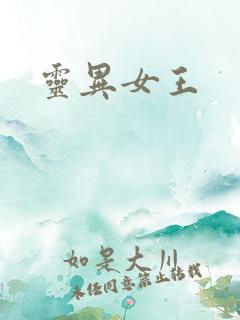 靈異女王
如是大川
未经同意禁止转载